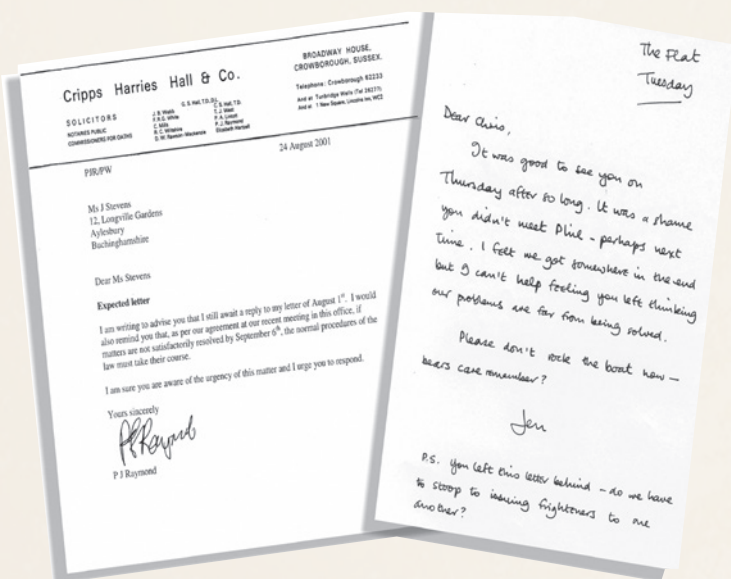 Cripps Harries Hall & Co.
SOLICITORS
NOTARIES PUBLIC
COMMISSIONERS FOR OATHS
G. S. Hall, T.D., D.L.
J. B. Wells
F.R.G. White
C. Mills
R. C. Wiltshire
D. W. Rawson-Mackenzie
C. S. Hall, T.D.
T. J. West
P. A. Linsell
P. J. Raymond
Elizabeth
BROADWAY HOUSE,
CROWBOROUGH, SUSSEX.
Telephone: Crowborough 62233
And at Tunbridge Wells (Tel 26277)
And at 1 New Square, Lincolns Inn, WC2
24 August 2001
PJR/PW
Ms J Stevens
12, Longville Gardens
Aylesbury
Buchinghamshire
Dear Ms Stevens
Expected letter
I am writing to advise you that I still await a reply to my letter of August 1st. I would
also remind you that, as per our agreement at our recent meeting in this office, if
matters are not satisfactorily resolved by September 6th, the normal procedures of the
law must take their course.
I am sure you are aware of the urgency of this matter and I urge you to respond.
Yours sincerely
P J Raymond
The Flat
Tuesday
Dear Chris,
It was good to see you on
Thursday after so long. It was a shame
you didn't meet Phil - perhaps next
time. I felt we got somewhere in the end
but I can't help feeling you left thinking
our problems are far from being solved.
Please don't rock the boat now -
bears care remember?
Jen
P.S. You left this letter behind - do we have
to stoop to issuing frighteners to one
another?